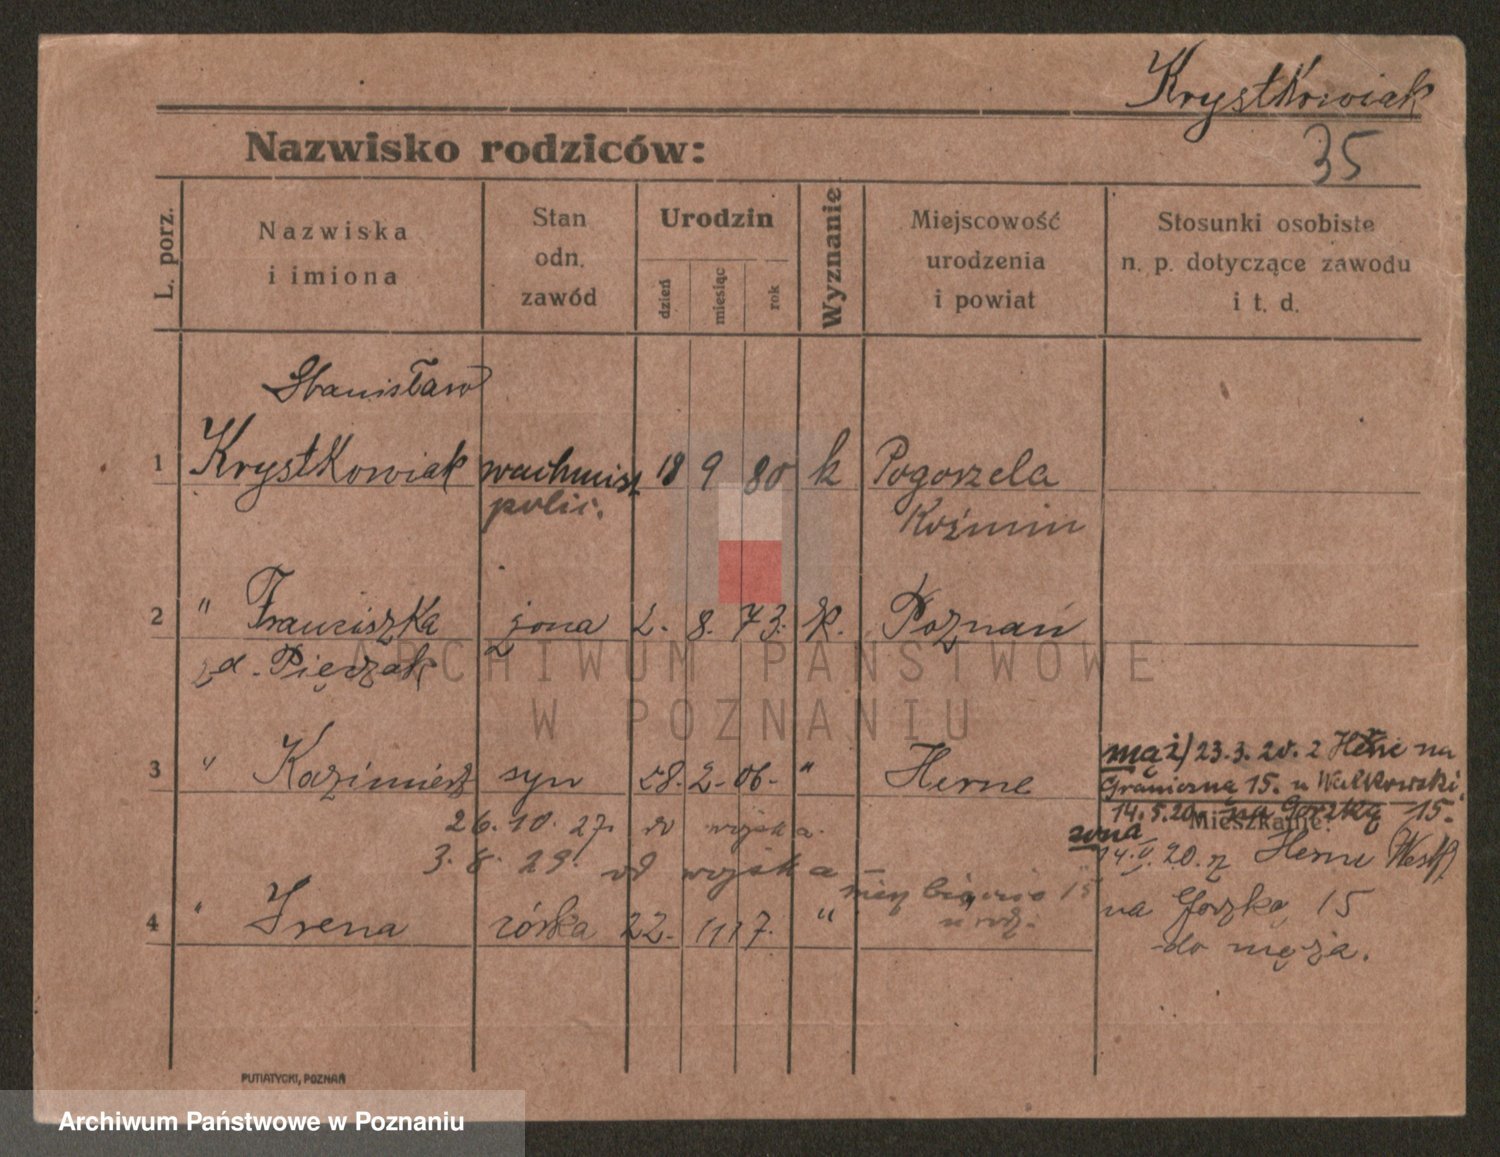 Krystkowiak
35
Nazwisko rodziców:
L. porz.
Nazwiska
i imiona
Stan
odn.
zawód
Urodzin
dzień
miesiąc
rok
Wyznanie
Miejscowość
urodzenia
i powiat
Stosunki osobiste
n. p. dotyczące zawodu
i t. d.
Stanisław
1 Krystkowiak wachmist 18 9 80 k Pogorzela
polic. Koźmin
2 " Franciszka żona 2. 8. 73. k. Poznań
zd. Pięczak
ARCHIWUM PAŃSTWOWE
W POZNANIU
3 " Kazimierz syn 28. 2. 06. " Herne
mąż) 23.3.20. z Herne na
Graniczną 15. u Walkowski.
14.5.20. na Gorzką 15.
Mieszkanie:
26.10.27. do wojska.
3.8.29. od wojska
żona
14.5.20. z Herne (Westf
na Gorzką 15
do męża.
4 " Irena córka 22. 11 17. "
15
u rodz.
PUTIATYCKI, POZNAŃ
Archiwum Państwowe w Poznaniu